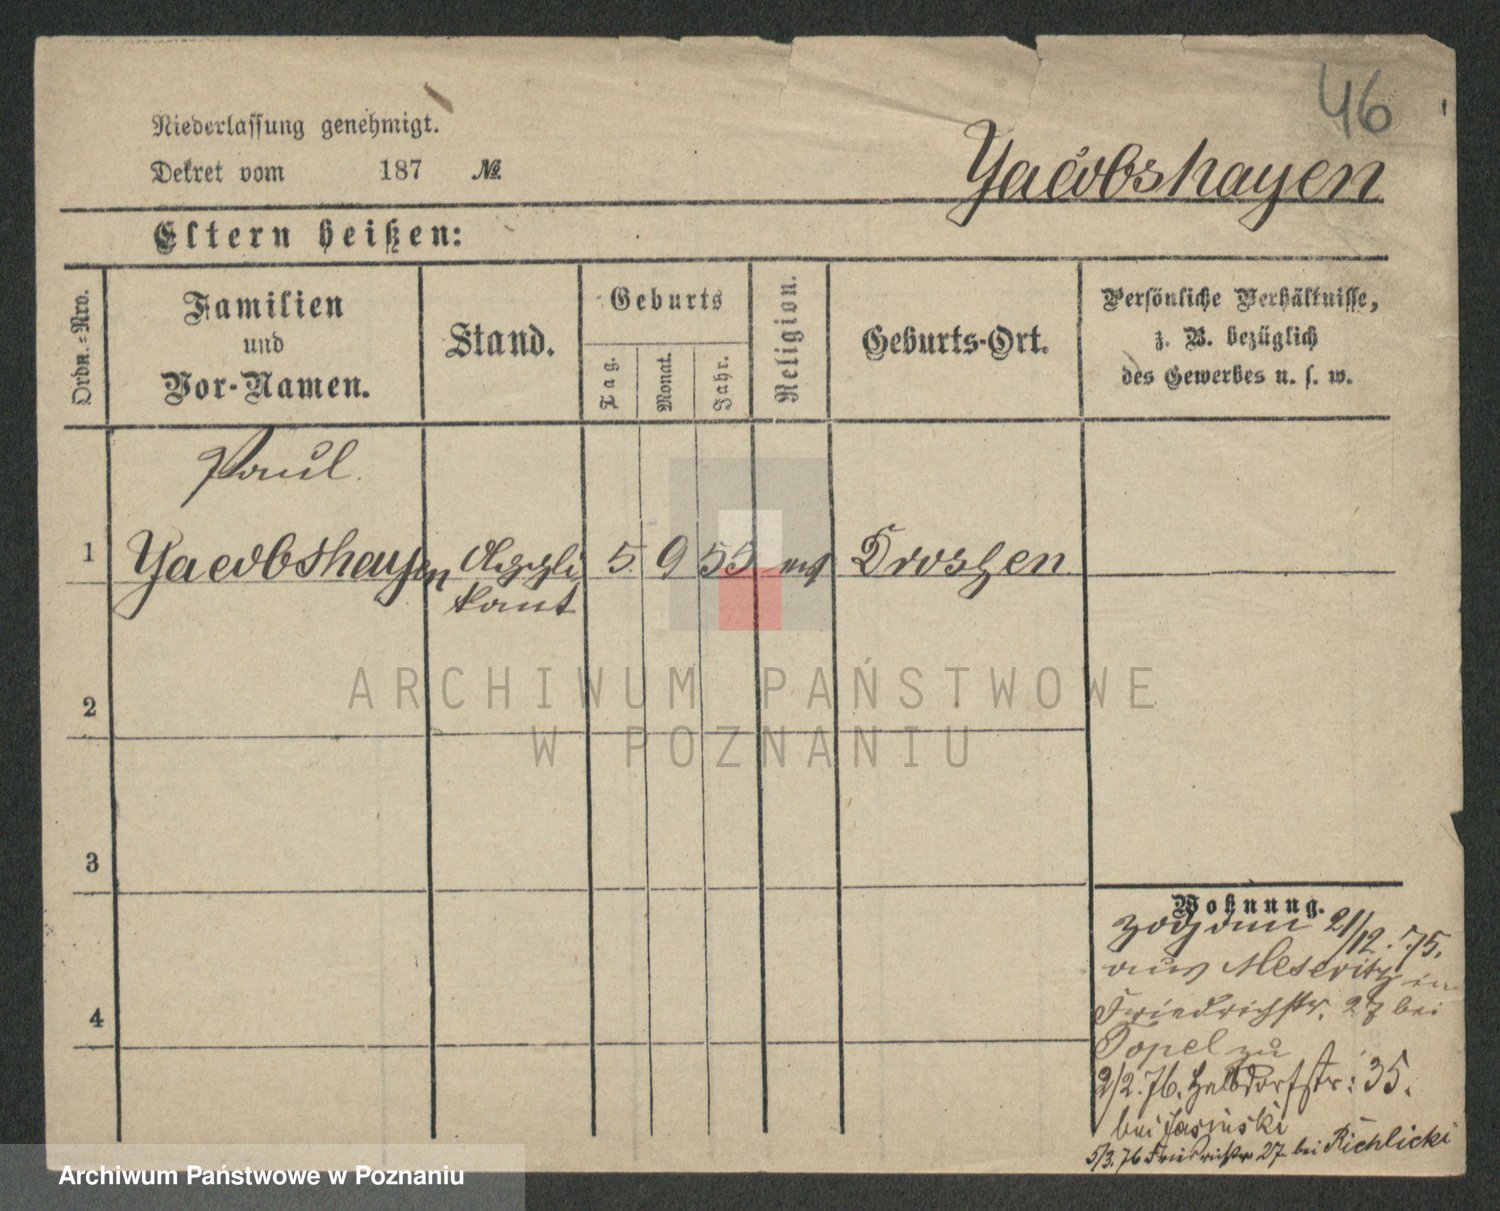 46
Niederlassung genehmigt.
Dekret vom 187 №
Yacobshagen
Eltern heißen:
Ordn.=Nro.
Familien
und
Vor-Namen.
Stand.
Geburts
Tag.
Monat.
Jahr.
Religion.
Geburts-Ort.
Persönliche Verhältnisse,
z. B. bezüglich
des Gewerbes u. s. w.
Paul
1 Yacobshagen Appli 5. 9 55 Droszen
kant
2
3
4
Wohnung.
zog am 21/12. 75.
aus Meseritz in
Friedrichstr. 27 bei
Popel zu
2/2. 76. Halbdorfstr: 35.
bei Jasinski
5/3. 76 Friedrichstr 27 bei Richlicki
ARCHIWUM PAŃSTWOWE
W POZNANIU
Archiwum Państwowe w Poznaniu